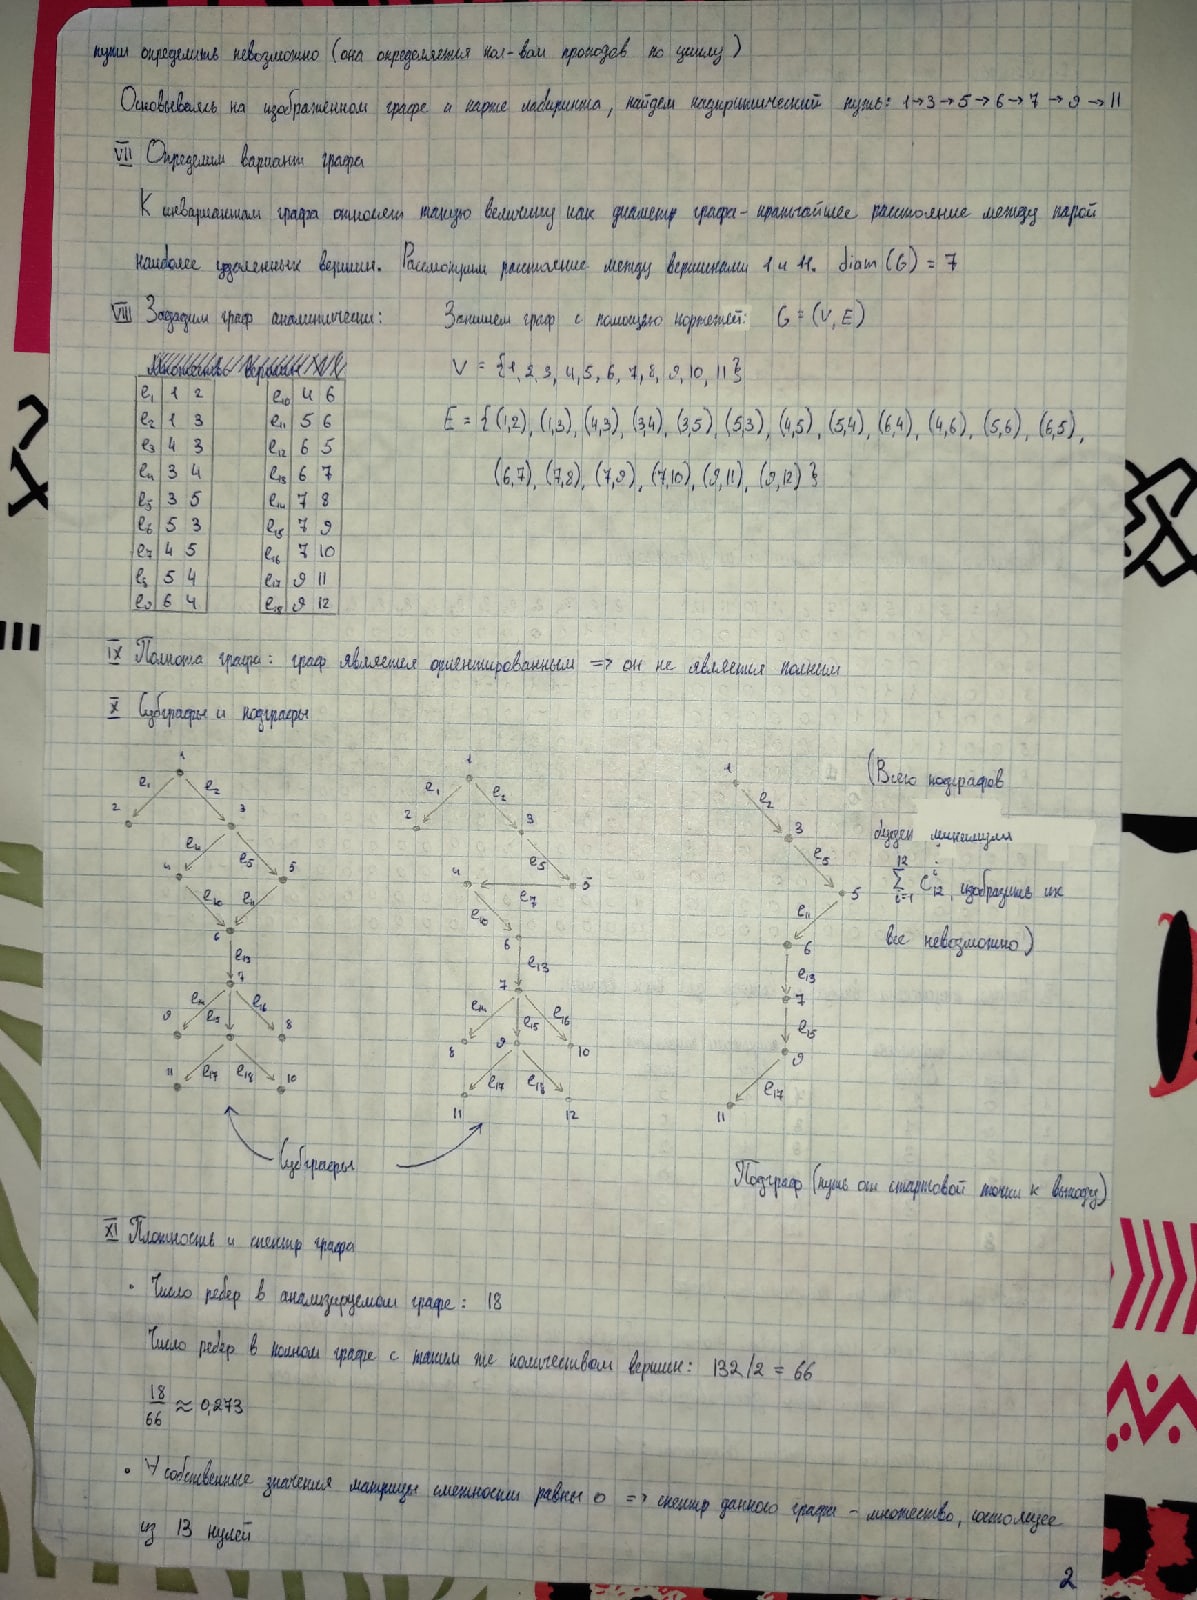 пути определить невозможно (она определяется кол-вом проходов по циклу)
Основываясь на изображённом графе и карте лабиринта, найдем кадиритический путь: 1→3→5→6→7→9→11
VII Определим вариант графа
К инвариантам графа относят такую величину как диаметр графа - кратчайшее расстояние между парой
наиболее удаленных вершин. Рассмотрим расстояние между вершинами 1 и 11. diam(G) = 7
VIII Зададим граф аналитически: Запишем граф с помощью кортежей: G = (V, E)
V = {1, 2, 3, 4, 5, 6, 7, 8, 9, 10, 11}
E = {(1,2), (1,3), (4,3), (3,4), (3,5), (5,3), (4,5), (5,4), (6,4), (4,6), (5,6), (6,5),
(6,7), (7,8), (7,9), (7,10), (9,11), (9,12)}
e1 1 2 e10 4 6
e2 1 3 e11 5 6
e3 4 3 e12 6 5
e4 3 4 e13 6 7
e5 3 5 e14 7 8
e6 5 3 e15 7 9
e7 4 5 e16 7 10
e8 5 4 e17 9 11
e9 6 4 e18 9 12
IX Полнота графа: граф является ориентированным => он не является полным
X Субграфы и подграфы
1
e1 e2
2 3
e4 e5
4 5
e10 e11
6
e13
7
e14 e15 e16
9 8
e17 e18
11 10
1
e1 e2
2 3
e5
4 5
e7
e10
6
e13
7
e14 e15 e16
8 9 10
e17 e18
11 12
1
e2
3
e5
5
e11
6
e13
7
e15
9
e17
11
(Всего подграфов
будет минимум
12
Σ C12^i, изобразить их
i=1
все невозможно)
Субграфы
Подграф (путь от стартовой точки к выходу)
XI Плотность и спектр графа
• Число ребер в анализируемом графе: 18
Число ребер в полном графе с таким же количеством вершин: 132/2 = 66
18/66 ≈ 0,273
• ∀ собственные значения матрицы смежности равны 0 => спектр данного графа - множество, состоящее
из 13 нулей
2